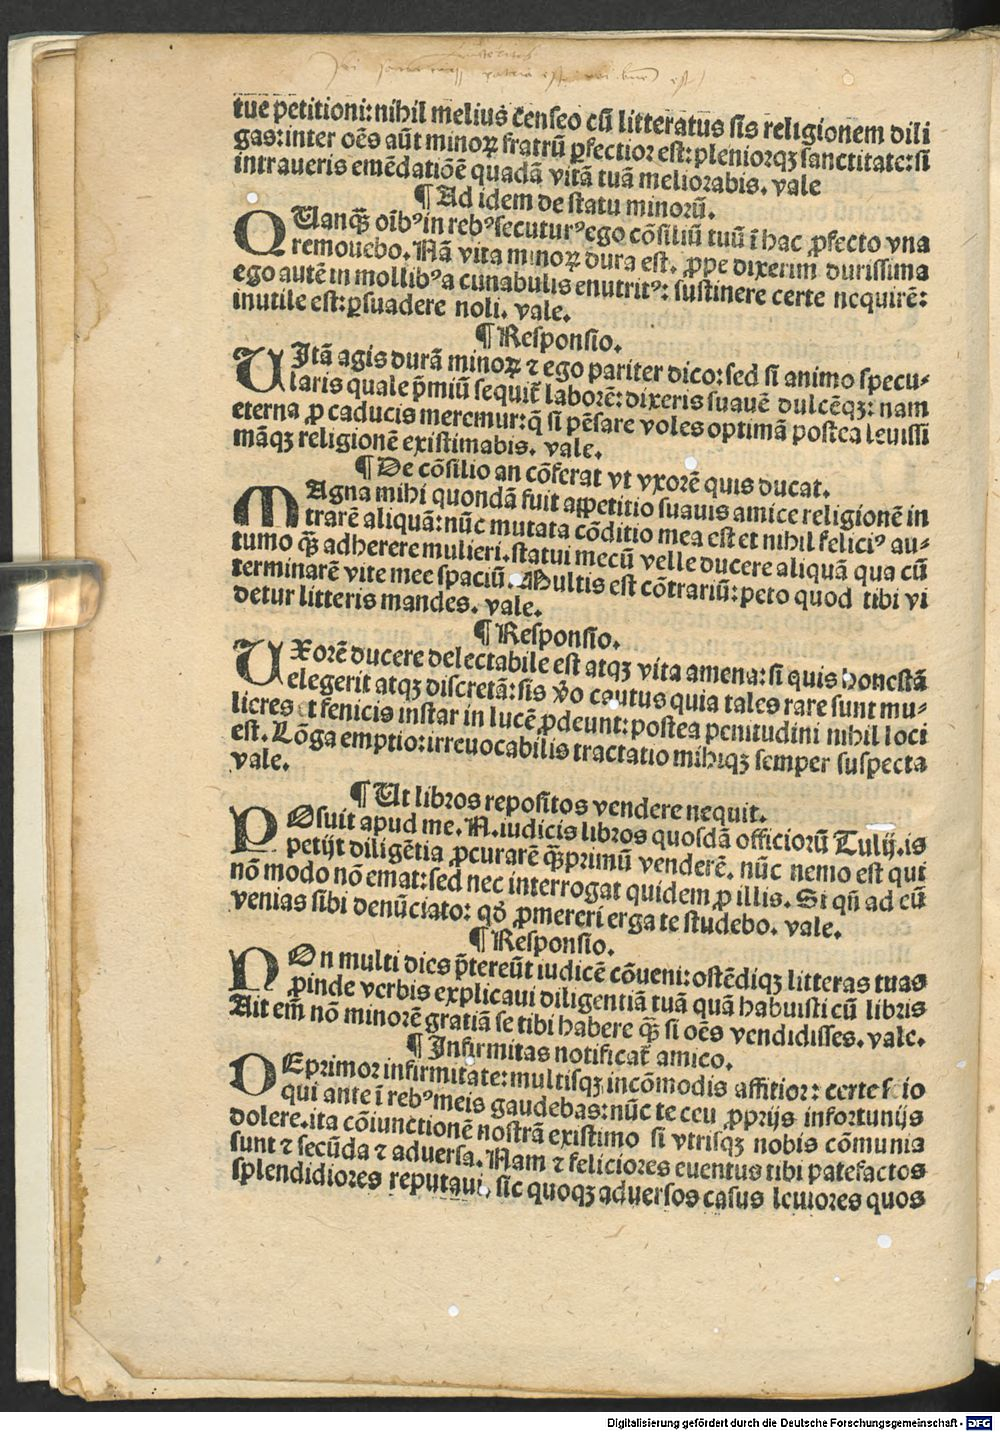 tue petitioni: nihil melius c̄enseo cū litteratus sis religionem dili
gas: inter oēs aūt minoꝝ fratrū ꝑfectior est: pleniorqꝫ sanctitate: si
intraueris emēdatiōē quadā vitā tuā meliorabis. vale
¶ Ad idem de statu minorū.
QUanq̄ꝫ oīb⁹ in reb⁹ secutur⁹ ego cōsiliū tuū ī hac ꝓfecto vna
remouebo. Nā vita minoꝝ dura est. ꝓpe dixerim durissima
ego autē in mollib⁹ a cunabulis enutrit⁹: sustinere certe nequirē:
inutile est: ꝑsuadere noli. vale.
¶ Responsio.
UItā agis durā minoꝝ ⁊ ego pariter dico: sed si animo specu⸗
laris quale p̄miū sequit̄ laborē: dixeris suauē dulcēqꝫ: nam
eterna ꝓ caducis meremur: q̄ si pēsare voles optimā postea leuissi
māqꝫ religionē existimabis. vale.
¶ De cōsilio an cōferat vt vxorē quis ducat.
MAgna mihi quondā fuit appetitio suauis amice religionē in
trarē aliquā: nūc mutata cōditio mea est et nihil felici⁹ au⸗
tumo q̄ꝫ adherere mulieri. statui mecū velle ducere aliquā qua cū
terminarē vite mee spaciū. Multis est cōtrariū: peto quod tibi vi
detur litteris mandes. vale.
¶ Responsio.
UXorē ducere delectabile est atqꝫ vita amena: si quis honestā
elegerit atqꝫ discretā: sis v̄o cautus quia tales rare sunt mu⸗
lieres et fenicis instar in lucē ꝓdeunt: postea penitudini nihil loci
est. Lōga emptio: irreuocabilis tractatio mihiqꝫ semper suspecta
vale.
¶ Ut libros repositos vendere nequit.
POsuit apud me. N. iudicis libros quosdā officiorū Tulij. is
petijt diligētia ꝓcurarē q̄ꝫprimū venderē. nūc nemo est qui
nō modo nō emat: sed nec interrogat quidem ꝓ illis. Si qn̄ ad eū
venias sibi denūciato: qđ ꝓmereri erga te studebo. vale.
¶ Responsio.
NOn multi dies p̄tereūt iudicē cōueni: ostēdiqꝫ litteras tuas
ꝓinde verbis explicaui diligentiā tuā quā habuisti cū libris
Ait em̄ nō minorē gratiā se tibi habere q̄ꝫ si oēs vendidisses. vale.
¶ Infirmitas notificat̄ amico.
DEprimor infirmitate: multisqꝫ incōmodis affitior: certe scio
qui ante ī reb⁹ meis gaudebas: nūc te ceu ꝓprijs infortunijs
dolere. ita cōiunctionē nostrā existimo si vtrisqꝫ nobis cōmunia
sunt ⁊ secūda ⁊ aduersa. Nam ⁊ feliciores euentus tibi patefactos
splendidiores reputaui, sic quoqꝫ aduersos casus leuiores quos
Digitalisierung gefördert durch die Deutsche Forschungsgemeinschaft - DFG